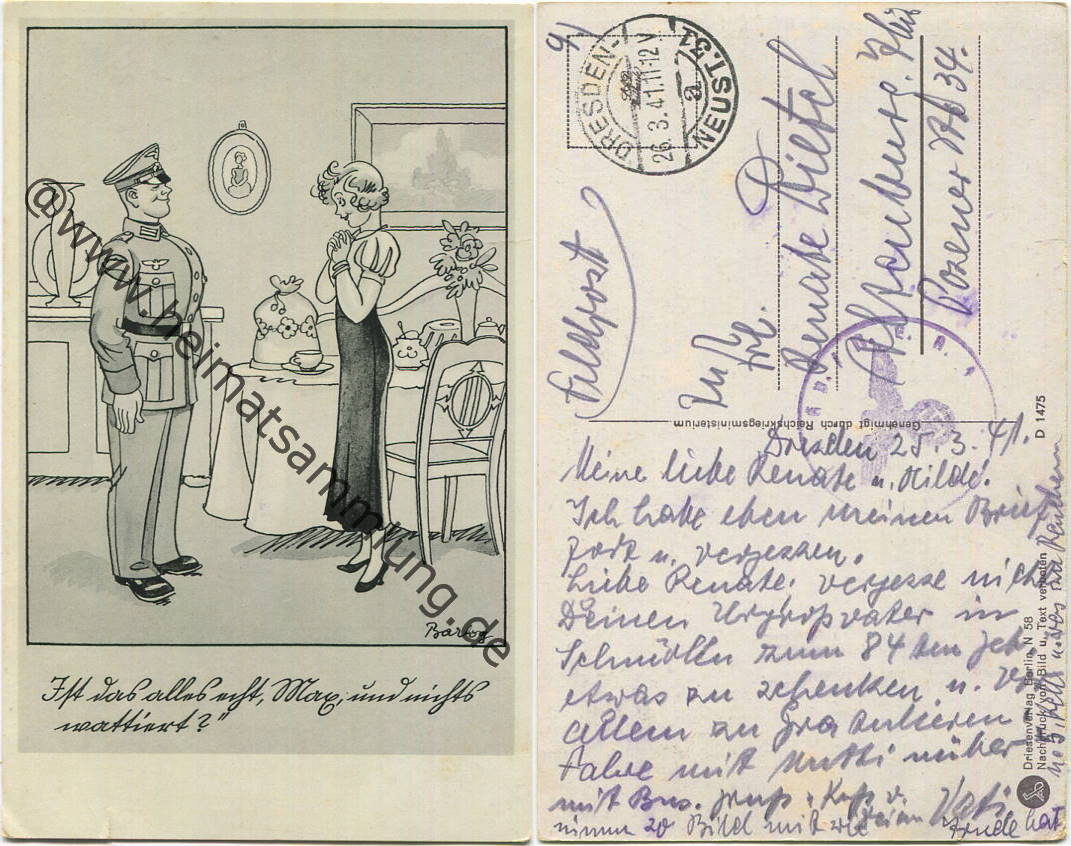 @www.heimatsammlung.de
Barlog
Ist das alles echt, Max, und nichts
wattiert?"
91
DRESDEN-
26.3.41.11-12V
a
NEUST.31
Feldpost
An
Frl.
Renate
Altenburg. Thür
Posener Str 34.
Genehmigt durch Reichskriegsministerium
D 1475
Dresden 25.3.41.
Meine liebe Renate u. Hilde!
Ich habe eben meinen Brief
fort u. vergessen.
Liebe Renate. vergesse nicht
Deinen Urgroßvater in
Schmölln zum 84 ten
etwas zu schenken u. vor
allem zu gratulieren
Fahre mit Mutti rüber
mit Bus. Gruß u. Kuß v.
Deinem Vati
nimm 20 Bild mit
Driesenverlag Berlin N 58
Nachdruck von Bild u. Text verboten